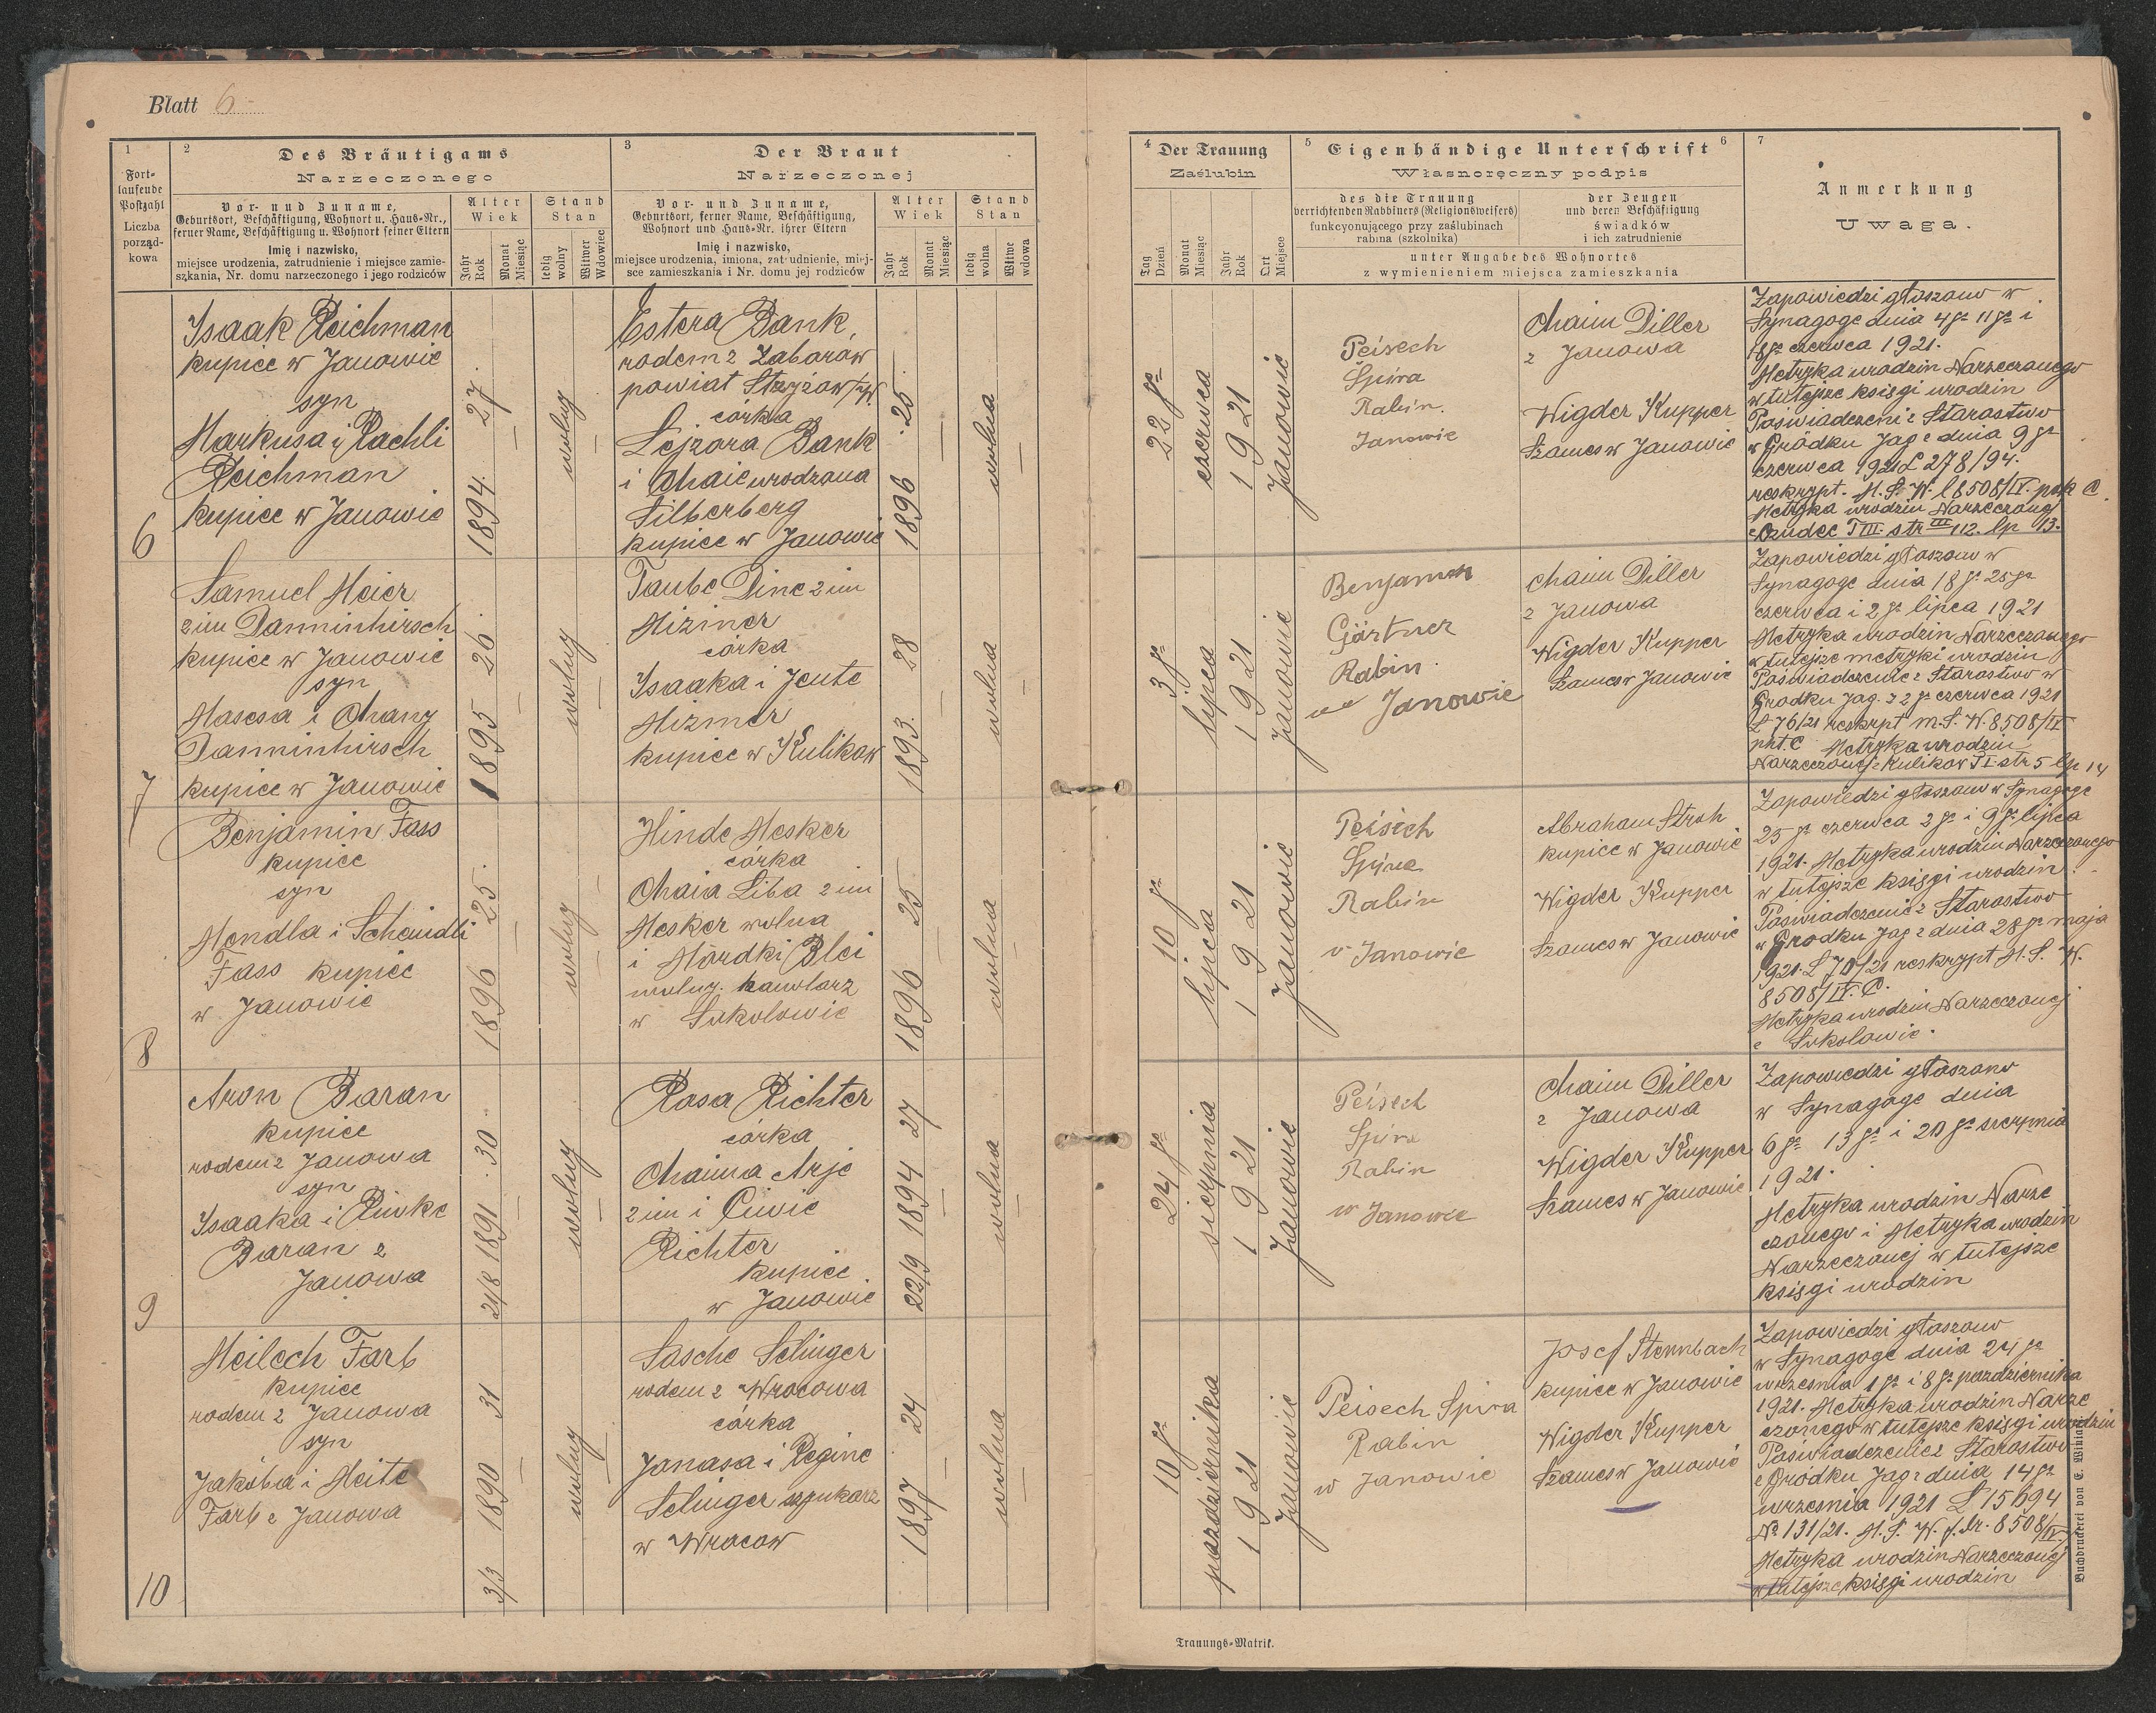 Blatt 6
1
Fort-
laufende
Postzahl
Liczba
porząd-
kowa
2
Des Bräutigams
Narzeczonego
Vor- und Zuname,
Geburtsort, Beschäftigung, Wohnort u. Haus-Nr.,
ferner Name, Beschäftigung u. Wohnort seiner Eltern
Imię i nazwisko,
miejsce urodzenia, zatrudnienie i miejsce zamie-
szkania, Nr. domu narzeczonego i jego rodziców
Alter
Wiek
Jahr
Rok
Monat
Miesiąc
Stand
Stan
ledig
wolny
Witwer
Wdowiec
3
Der Braut
Narzeczonej
Vor- und Zuname,
Geburtsort, ferner Name, Beschäftigung,
Wohnort und Haus-Nr. ihrer Eltern
Imię i nazwisko,
miejsce urodzenia, imiona, zatrudnienie, miej-
sce zamieszkania i Nr. domu jej rodziców
Alter
Wiek
Jahr
Rok
Monat
Miesiąc
Stand
Stan
ledig
wolna
Witwe
wdowa
4
Der Trauung
Zaślubin
Tag
Dzień
Monat
Miesiąc
Jahr
Rok
Ort
Miejsce
5
Eigenhändige Unterschrift
6
Własnoręczny podpis
des die Trauung
verrichtenden Rabbiners (Religionsweisers)
funkcyonującego przy zaślubinach
rabina (szkolnika)
der Zeugen
und deren Beschäftigung
świadków
i ich zatrudnienie
unter Angabe des Wohnortes
z wymienieniem miejsca zamieszkania
7
Anmerkung
Uwaga.
6
Isaak Reichman
kupiec w Janowie
syn
Markusa i Rachli
Reichman
kupiec w Janowie
1894. 27.
wolny
Estera Bank,
rodem z Zabarów
powiat Strzyżow
córka
Lejzora Bank
i Chaie urodzona
Silberberg
kupiec w Janowie
1896 25.
wolna
22go
czerwca
1921
Janowie
Peisech
Spira
Rabin.
Janowie
Chaim Diller
z Janowa
Wigder Kupper
Szames w Janowie
Zapowiedzi głoszono w
Synagoge dnia 4go 11go i
18go czerwca 1921.
Metryka urodzin Narzeczonego
w tutejsze księgi urodzin
Poświadczeni z Starostwo
w Gródku Jag z dnia 9go
czerwca 1921 L 278/94.
reskrypt. M. S. W. l 8508/IV. pok C.
Metryka urodzin Narzeczonej
z Czudec T III. str 112. lp 13.
7
Samuel Meier
2im Danninhirsch
kupiec w Janowie
syn
Masesa i Chany
Danninhirsch
kupiec w Janowie
1895 26.
wolny
Taube Dine 2im
Mizmer
córka
Isaaka i Jente
Mizmer
kupiec w Kulikow
1893. 28
wolna
3go
lipca
1921
Janowie
Benjamin
Gärtner
Rabin.
w Janowie
Chaim Diller
z Janowa
Wigder Kupper
Szames w Janowie
Zapowiedzi głoszono w
Synagoge dnia 18go 25go
czerwca i 2go lipca 1921
Metryka urodzin Narzeczonego
w tutejsze metryki urodzin
Poświadczenie z Starostwo w
Grodku Jag. z 2go czerwca 1921
L 76/21 reskrpt M. S. W. 8508/IV
pkt. C Metryka urodzin
Narzeczonej z Kulikow T I. str 5 lp 14
8
Benjamin Fass
kupiec
syn
Mendla i Scheindli
Fass kupiec
w Janowie
1896 25.
wolny
Hinde Mesker
córka
Chaia Liba 2im
Mesker wolna
i Mardki Blei
wolny. handlarz
w Sokolowie
1896 25
wolna
10go
lipca
1921
Janowie
Peisech
Spira
Rabin
w Janowie
Abraham Stroh
kupiec w Janowie
Wigder Kupper
Szames w Janowie
Zapowiedzi głoszono w Synagoge
25go czerwca 2go i 9go lipca
1921. Metryka urodzin Narzeczonego
w tutejsze księgi urodzin.
Poświadczenie z Starostwo
w Grodku Jag z dnia 28go maja
1921. L 70/21 reskrypt M. S. W.
8508/IV. C.
Metryka urodzin Narzeczonej
z Sokolowie.
9
Aron Baran
kupiec
rodem z Janowa
syn
Isaaka i Riwke
Baran z
Janowa
24/8 1891. 30
wolny
Rosa Richter
córka
Chaima Arje
2im i Ciwie
Richter
kupiec
w Janowie
22/9 1894 27
wolna
24go
sierpnia
1921
Janowie
Peisech
Spira
Rabin
w Janowie
Chaim Diller
z Janowa
Wigder Kupper
Szames w Janowie
Zapowiedzi głoszono
w Synagoge dnia
6go 13go i 20go sierpnia
1921.
Metryka urodzin Narze
czonego i Metryka urodzin
Narzeczonej w tutejsze
księgi urodzin
10
Meilech Farb
kupiec
rodem z Janowa
syn
Jakóba i Meite
Farb z Janowa
3/3 1890 31
wolny
Sasche Selinger
rodem z Wrocowa
córka
Janasa i Regine
Selinger szynkarz
w Wrocow
1897 24
wolna
10go
pazdziernika
1921
Janowie
Peisech Spira
Rabin
w Janowie
Josef Sternbach
kupiec w Janowie
Wigder Kupper
Szames w Janowie
Zapowiedzi głoszono
w Synagoge dnia 24go
wrzesnia 1go i 8go pazdziernika
1921. Metryka urodzin Narze
czonego w tutejsze księgi urodzin
Poświadczenie z Starostwo
z Grodku Jag z dnia 14go
wrzesnia 1921 L 15694
No 131/21. M. S. W. 8508/IV.
Metryka urodzin Narzeczonej
w tutejsze księgi urodzin
Trauungs-Matrik.